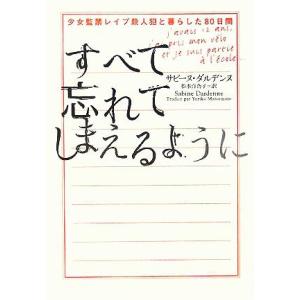 少女監禁レイプ殺人犯と暮らした80日間
j'avais 12 ans,
j'ai pris mon vélo
et je suis partie
à l'école
すべて
忘れて
しまえるように
サビーヌ・ダルデンヌ
松本百合子=訳
Sabine Dardenne
Traduit par Yuriko Matsumoto